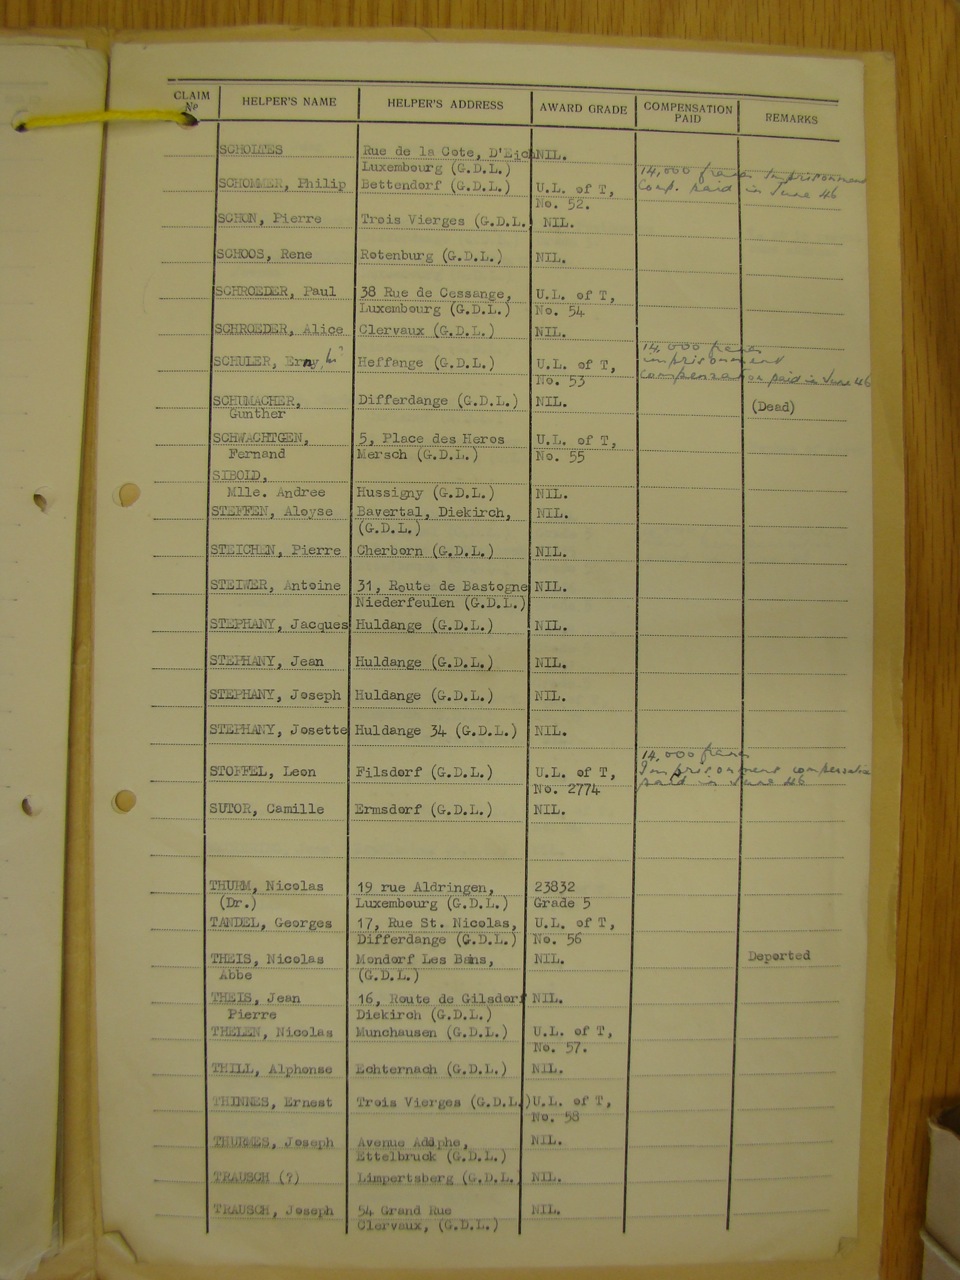 CLAIM No HELPER'S NAME HELPER'S ADDRESS AWARD GRADE COMPENSATION PAID REMARKS
SCHOLTES Rue de la Cote, D'Eich NIL.
Luxembourg (G.D.L.) 14,000 francs Imprisonment
SCHOMMER, Philip Bettendorf (G.D.L.) U.L. of T, Comp. paid in June 46
No. 52.
SCHON, Pierre Trois Vierges (G.D.L. NIL.
SCHOOS, Rene Rotenburg (G.D.L.) NIL.
SCHROEDER, Paul 38 Rue de Cessange, U.L. of T,
Luxembourg (G.D.L.) No. 54
SCHROEDER, Alice Clervaux (G.D.L.) NIL.
14,000 francs
SCHULER, Erny, Heffange (G.D.L.) U.L. of T, imprisonment
No. 53 compensation paid in June 46
SCHUMACHER, Differdange (G.D.L.) NIL. (Dead)
Gunther
SCHWACHTGEN, 5, Place des Heros U.L. of T,
Fernand Mersch (G.D.L.) No. 55
SIBOLD,
Mlle. Andree Hussigny (G.D.L.) NIL.
STEFFEN, Aloyse Bavertal, Diekirch, NIL.
(G.D.L.)
STEICHEN, Pierre Cherborn (G.D.L.) NIL.
STEIWER, Antoine 31, Route de Bastogne NIL.
Niederfeulen (G.D.L.)
STEPHANY, Jacques Huldange (G.D.L.) NIL.
STEPHANY, Jean Huldange (G.D.L.) NIL.
STEPHANY, Joseph Huldange (G.D.L.) NIL.
STEPHANY, Josette Huldange 34 (G.D.L.) NIL.
14,000 francs
STOFFEL, Leon Filsdorf (G.D.L.) U.L. of T, Imprisonment compensation
No. 2774 paid in June 46
SUTOR, Camille Ermsdorf (G.D.L.) NIL.
THURM, Nicolas 19 rue Aldringen, 23832
(Dr.) Luxembourg (G.D.L.) Grade 5
TANDEL, Georges 17, Rue St. Nicolas, U.L. of T,
Differdange (G.D.L.) No. 56
THEIS, Nicolas Mondorf Les Bains, NIL. Deported
Abbe (G.D.L.)
THEIS, Jean 16, Route de Gilsdorf NIL.
Pierre Diekirch (G.D.L.)
THELEN, Nicolas Munchausen (G.D.L.) U.L. of T,
No. 57.
THILL, Alphonse Echternach (G.D.L.) NIL.
THINNES, Ernest Trois Vierges (G.D.L.) U.L. of T,
No. 58
THURMES, Joseph Avenue Adolphe, NIL.
Ettelbruck (G.D.L.)
TRAUSCH (?) Limpertsberg (G.D.L.) NIL.
TRAUSCH, Joseph 54 Grand Rue NIL.
Clervaux, (G.D.L.)